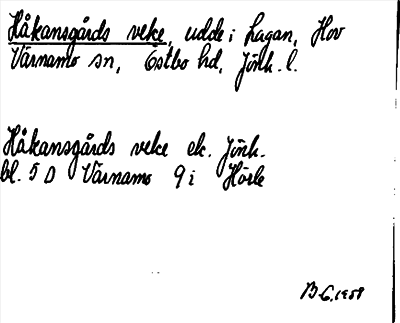 Håkansgårds veke, udde i Lagan, Hov
Värnamo sn, Östbo hd, Jönk. l.
Håkansgårds veke ek. Jönk.
bl. 5 D Värnamo 9 i Hörle
B-G. 1959